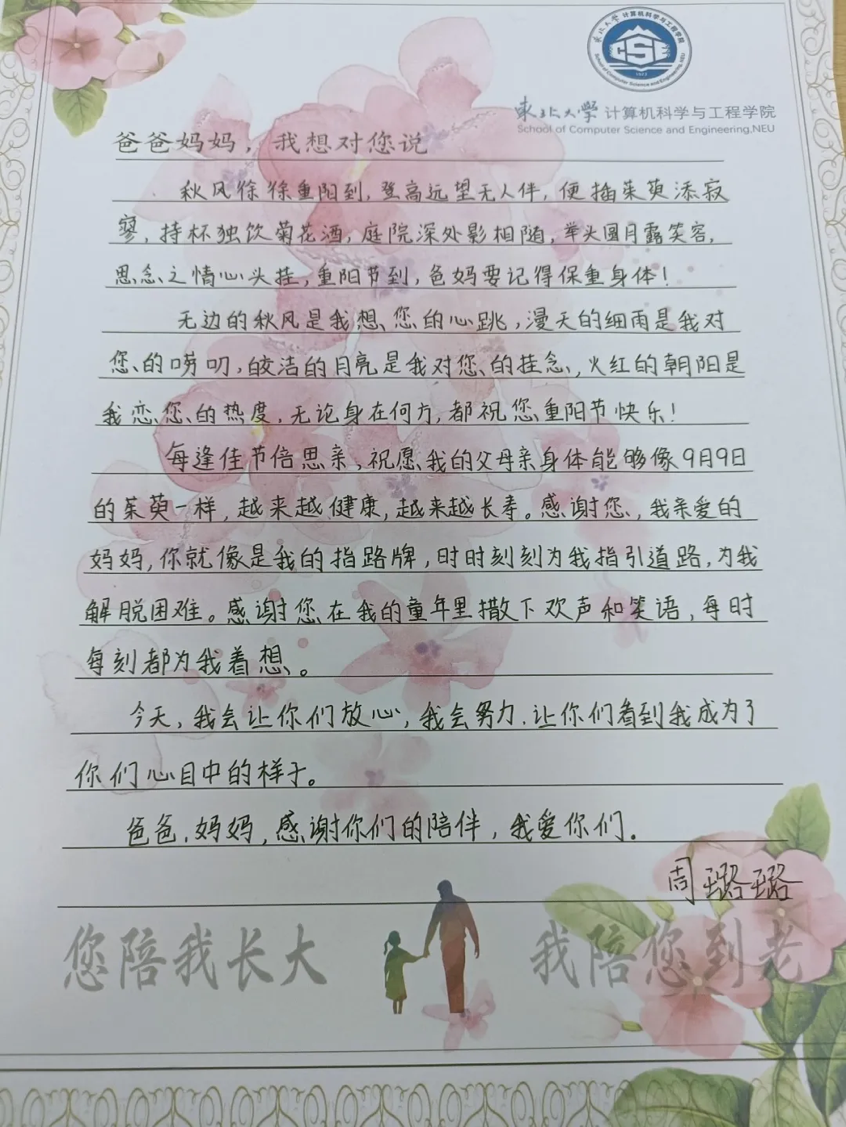 东北大学 计算机科学与工程学院
CSE
School of Computer Science and Engineering, NEU
东北大学 计算机科学与工程学院
School of Computer Science and Engineering,NEU
爸爸妈妈，我想对您说
秋风徐徐重阳到，登高远望无人伴，便插茱萸添寂
寥，持杯独饮菊花酒，庭院深处影相随，举头圆月露笑容，
思念之情心头挂，重阳节到，爸妈要记得保重身体！
无边的秋风是我想您的心跳，漫天的细雨是我对
您的唠叨，皎洁的月亮是我对您的挂念，火红的朝阳是
我恋您的热度，无论身在何方，都祝您重阳节快乐！
每逢佳节倍思亲，祝愿我的父母亲身体能够像9月9日
的茱萸一样，越来越健康，越来越长寿。感谢您，我亲爱的
妈妈，你就像是我的指路牌，时时刻刻为我指引道路，为我
解脱困难。感谢您在我的童年里撒下欢声和笑语，每时
每刻都为我着想。
今天，我会让你们放心，我会努力，让你们看到我成为了
你们心目中的样子。
爸爸，妈妈，感谢你们的陪伴，我爱你们。
周璐璐
您陪我长大
我陪您到老